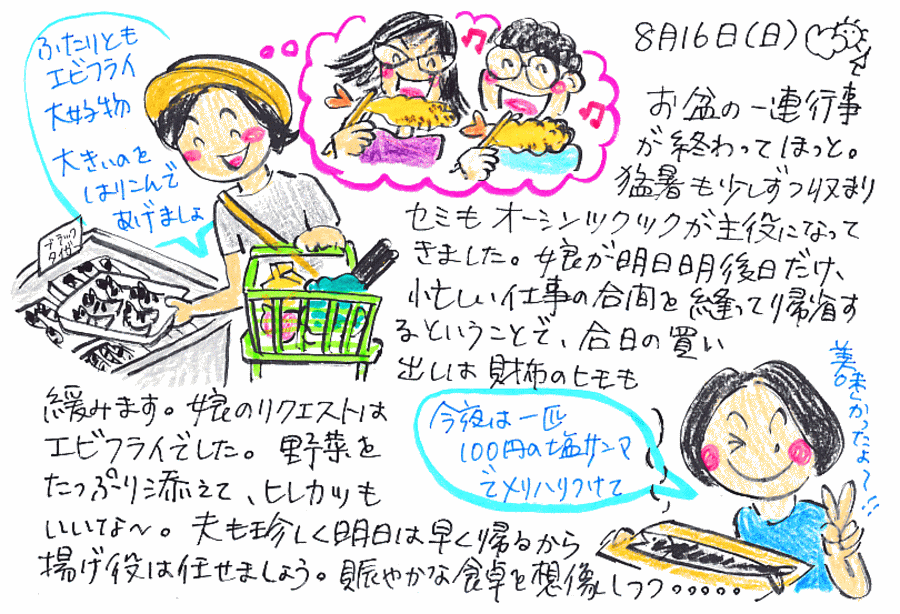 8月16日(日)
ふたりとも
エビフライ
大好物
大きいのを
はりこんで
あげましょ
ブラック
タイガー
お盆の一連行事
が終わってほっと。
猛暑も少しずつ収まり
セミもオーシンツクツクが主役になって
きました。娘が明日明後日だけ、
忙しい仕事の合間を縫って帰省す
るということで、今日の買い
出しは財布のヒモも
緩みます。娘のリクエストは
エビフライでした。野菜を
たっぷり添えて、ヒレカツも
いいな〜。夫も珍しく明日は早く帰るから
揚げ役は任せましょう。賑やかな食卓を想像しつつ・・・・・
今夜は一匹
100円の塩サンマ
でメリハリつけて
美味かったよ〜!!